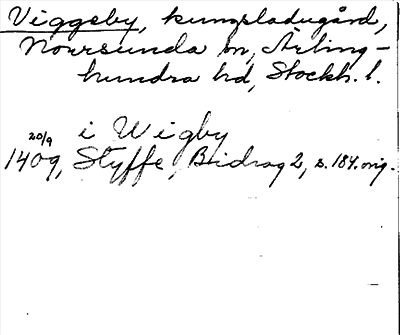 Viggeby, kungsladugård,
Norrsunda sn, Ärling-
hundra hd, Stockh. l.
i Wigby
20/9
1409, Styffe, Bidrag 2, s. 184. orig.